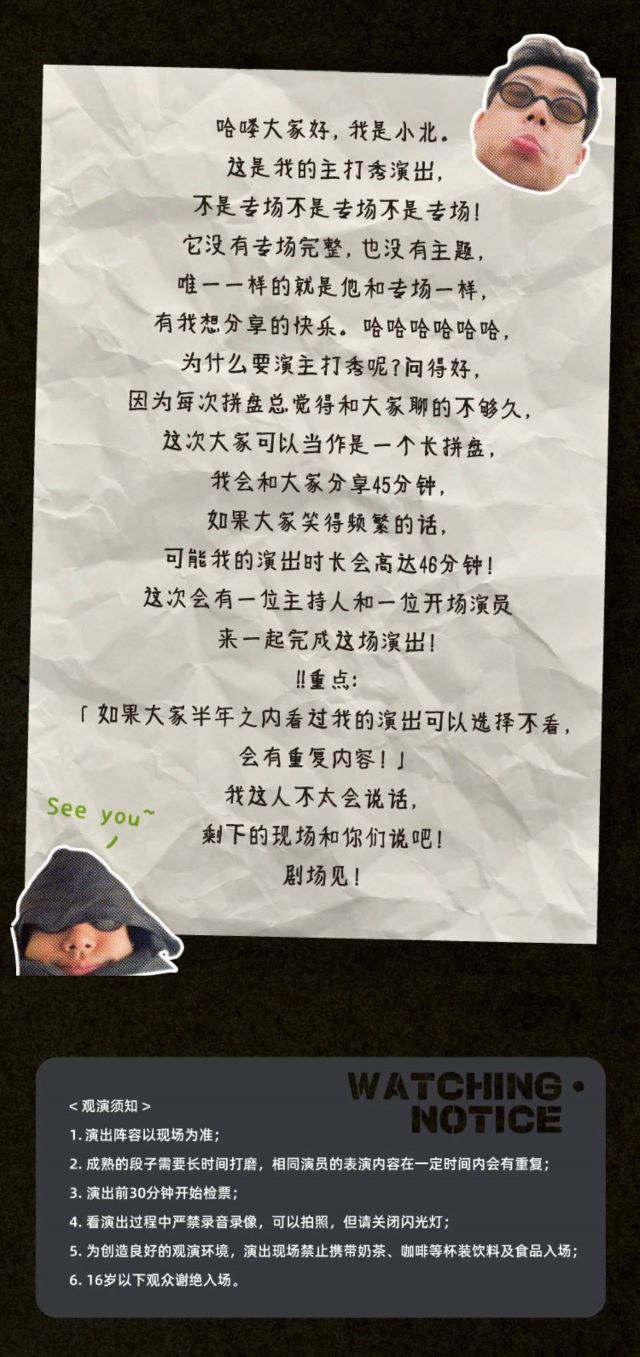 哈喽大家好，我是小北。
这是我的主打秀演出，
不是专场不是专场不是专场！
它没有专场完整，也没有主题，
唯一一样的就是他和专场一样，
有我想分享的快乐。哈哈哈哈哈哈，
为什么要演主打秀呢？问得好，
因为每次拼盘总觉得和大家聊的不够久，
这次大家可以当作是一个长拼盘，
我会和大家分享45分钟，
如果大家笑得频繁的话，
可能我的演出时长会高达46分钟！
这次会有一位主持人和一位开场演员
来一起完成这场演出！
!!重点：
「如果大家半年之内看过我的演出可以选择不看，
会有重复内容！」
我这人不太会说话，
剩下的现场和你们说吧！
剧场见！
See you~
WATCHING •
NOTICE
< 观演须知 >
1. 演出阵容以现场为准；
2. 成熟的段子需要长时间打磨，相同演员的表演内容在一定时间内会有重复；
3. 演出前30分钟开始检票；
4. 看演出过程中严禁录音录像，可以拍照，但请关闭闪光灯；
5. 为创造良好的观演环境，演出现场禁止携带奶茶、咖啡等杯装饮料及食品入场；
6. 16岁以下观众谢绝入场。